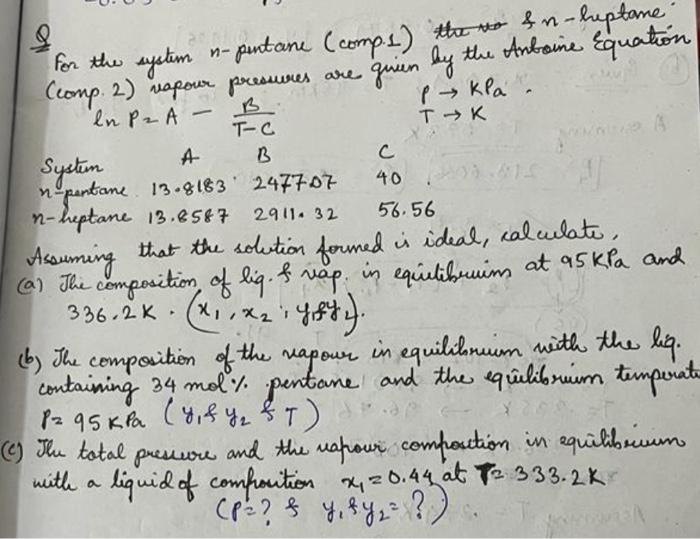 Q
For the system n-pentane (comp.1) & n-heptane
(comp. 2) vapour pressures are given by the Antoine Equation
ln P = A - B/(T-C) P → KPa. T → K
System A B C
n-pentane 13.8183 2477.07 40
n-heptane 13.8587 2911.32 56.56
Assuming that the solution formed is ideal, calculate,
(a) The composition of liq. & vap. in equilibrium at 95 KPa and
336.2K. (x₁, x₂, y₁ & y₂).
(b) The composition of the vapour in equilibrium with the liq.
containing 34 mol % pentane and the equilibrium temperat
P= 95 KPa (y₁ & y₂ & T)
(c) The total pressure and the vapour composition in equilibrium
with a liquid of composition x₁ = 0.44 at T= 333.2K
(P=? & y₁ & y₂ = ?)